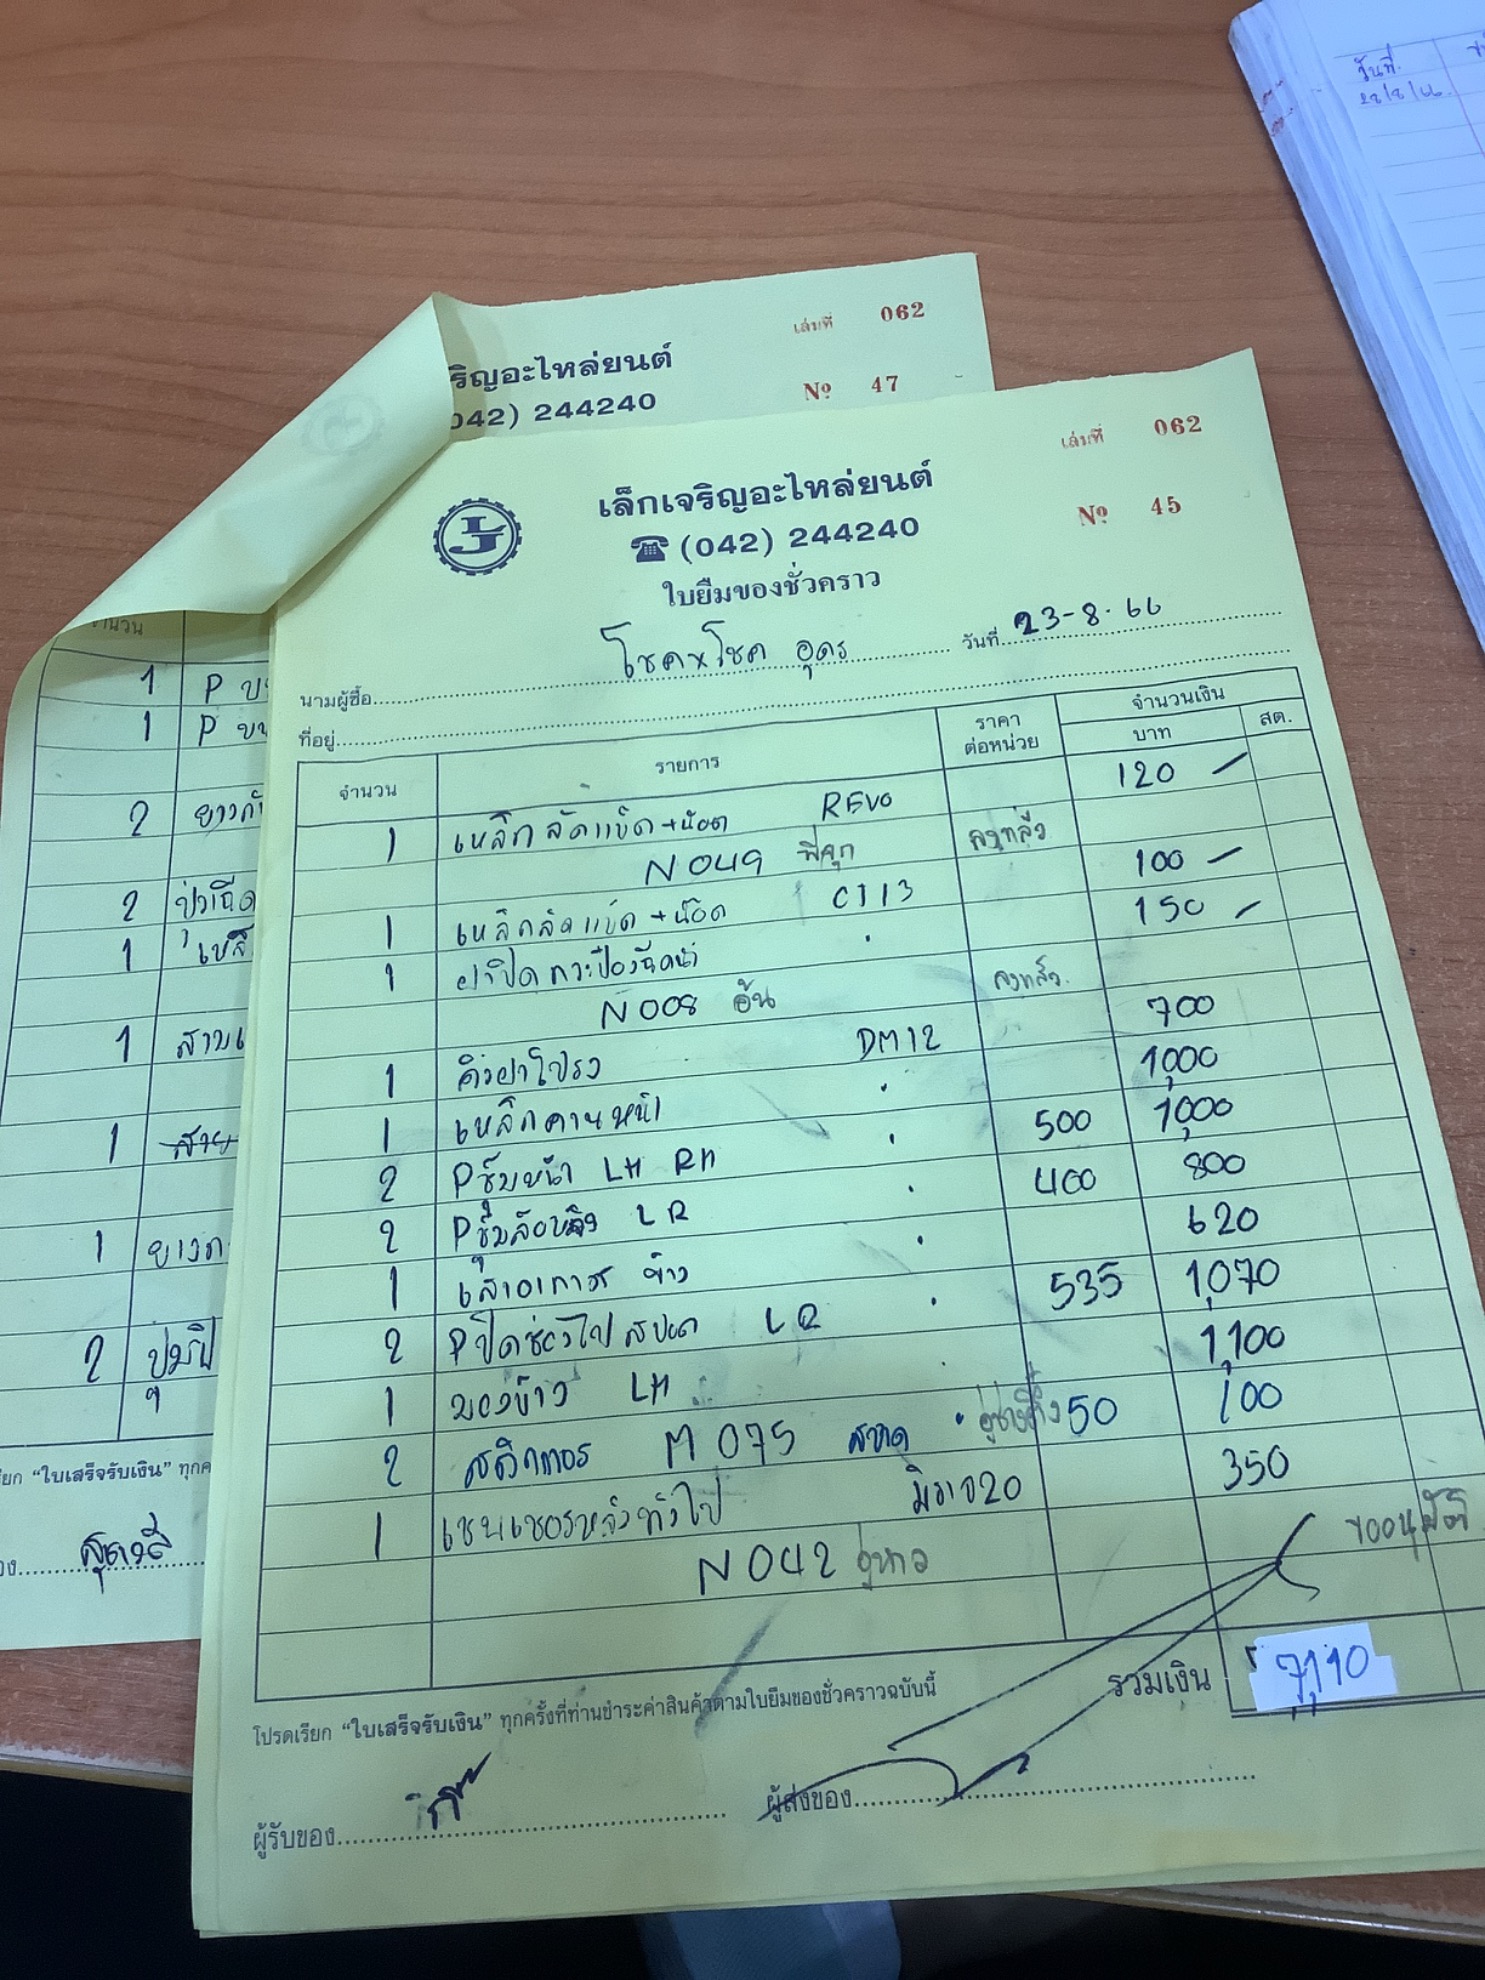 วันที่
22/8/66
เล่มที่ 062
ริญอะไหล่ยนต์
042) 244240
Nº 47
เล่มที่ 062
เล็กเจริญอะไหล่ยนต์
Nº 45
(042) 244240
ใบยืมของชั่วคราว
นามผู้ซื้อ โชค x โชค อุดร วันที่ 23-8-66
ที่อยู่
จำนวน รายการ ราคาต่อหน่วย จำนวนเงิน
บาท สต.
1 เหล็กรัดแบ็ต+น๊อต REVO 120 -
N 049 พี่จุก ลงแล้ว
1 เหล็กรัดแบ็ต+น๊อต CT13 100 -
1 ฝาปิดกระป๋องฉีดน้ำ 150 -
N 008 อ้น ลงแล้ว
1 คิ้วฝาโปรง DM12 700
1 เหล็กคานหน้า 1,000
2 Pซุ้มหน้า LH RH 500 1,000
2 Pซุ้มล้อหลัง L R 400 800
1 เสาอากาศ ข้าง 620
2 Pปิดช่องไฟสปอต L R 535 1,070
1 มองข้าง LH 1,100
2 สติกเกอร M 075 50 100
1 เซนเซอรหลังทั่วไป มิราจ20 350
N 042 ขออนุมัติ
รวมเงิน 7,110
โปรดเรียก "ใบเสร็จรับเงิน" ทุกครั้งที่ท่านชำระค่าสินค้าตามใบยืมของชั่วคราวฉบับนี้
ผู้รับของ ผู้ส่งของ
จำนวน
1 P
1 P
2 ยาง
2
1
1 สาย
1 สาย
1 ยาง
2
เรียก "ใบเสร็จรับเงิน" ทุกค